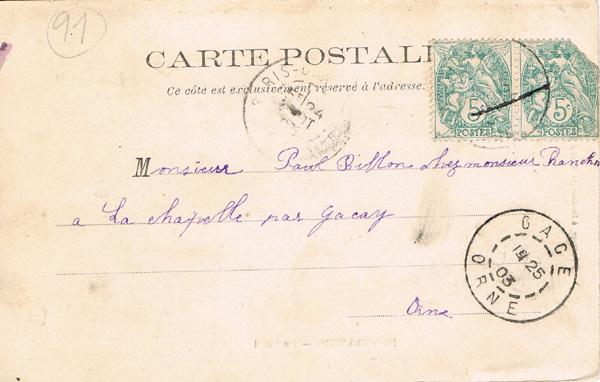 91
CARTE POSTALE
Ce côté est exclusivement réservé à l'adresse.
5c 5c
POSTES POSTES
PARIS
24
Monsieur Paul Billon chez monsieur
a La chapelle par Gacay
Orne
GACE
25
03
ORNE